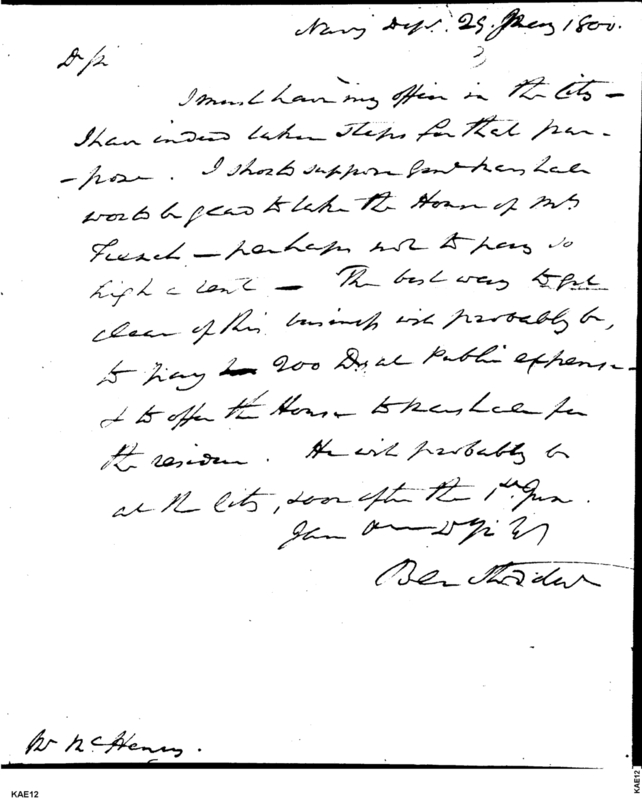 Navy Dept. 29. May 1800.
D Sir
I must have my office in the City –
I have indeed taken steps for that pur-
-pose. I should suppose Genl Marshall
would be glad to take the House of Mrs
French – perhaps not to pay so
high a rent – The best way to get
clear of this business will probably be,
to pay 200 Ds at Public expense
& to offer the House to Marshall for
the residue. He will probably be
at the City, soon after the 1st. June.
I am D Sir
Ben Stoddert
Mr McHenry.
KAE12
KAE12